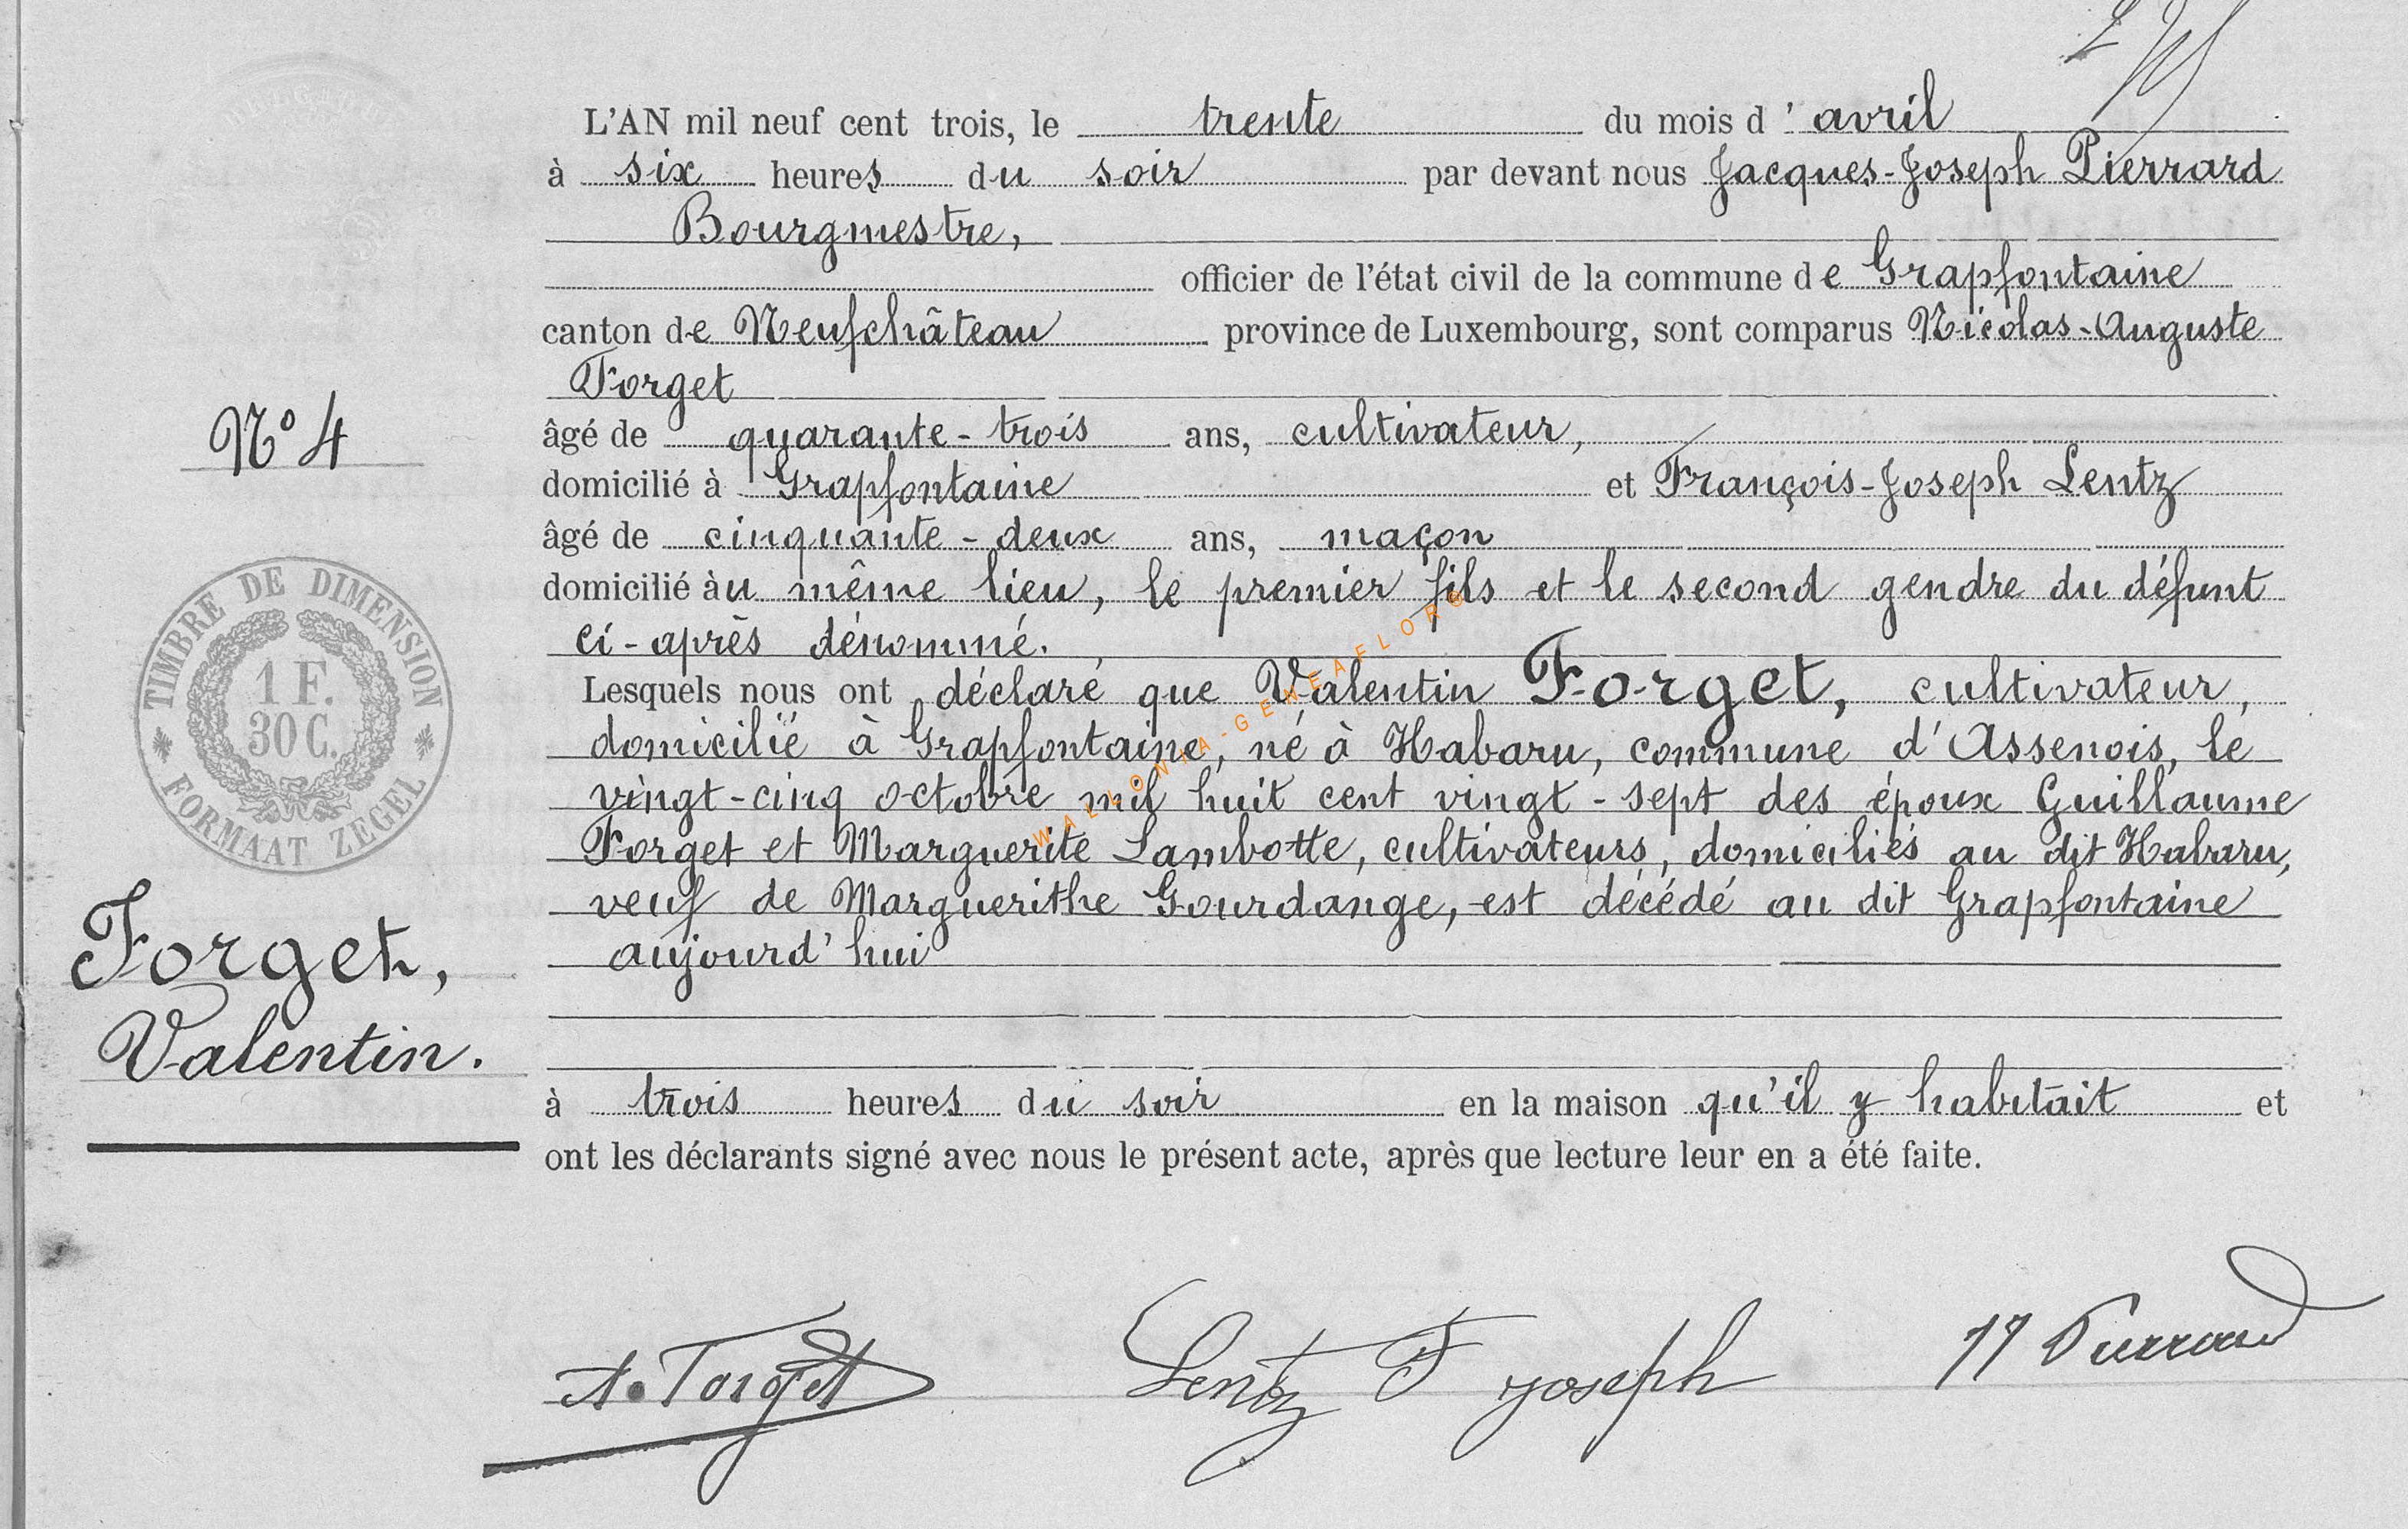 L'AN mil neuf cent trois, le trente du mois d'avril
à six heures du soir par devant nous Jacques-Joseph Pierrard
Bourgmestre,
officier de l'état civil de la commune de Grapfontaine
canton de Neufchâteau province de Luxembourg, sont comparus Nicolas-Auguste
Forget
âgé de quarante-trois ans, cultivateur,
domicilié à Grapfontaine et François-Joseph Lentz
âgé de cinquante-deux ans, maçon
domicilié àu même lieu, le premier fils et le second gendre du défunt
ci-après dénommé.
Lesquels nous ont déclaré que Valentin Forget, cultivateur,
domicilié à Grapfontaine, né à Habaru, commune d'Assenois, le
vingt-cinq octobre mil huit cent vingt-sept des époux Guillaume
Forget et Marguerite Lambotte, cultivateurs, domiciliés au dit Habaru,
veuf de Marguerithe Gourdange, est décédé au dit Grapfontaine
aujourd'hui
à trois heures du soir en la maison qu'il y habitait et
ont les déclarants signé avec nous le présent acte, après que lecture leur en a été faite.
N° 4
TIMBRE DE DIMENSION
1 F.
30 C.
FORMAAT ZEGEL
Forget,
Valentin.
WALLONIA-GENEAFLORE
A. Forget
Lentz F Joseph
JJ Pierrard